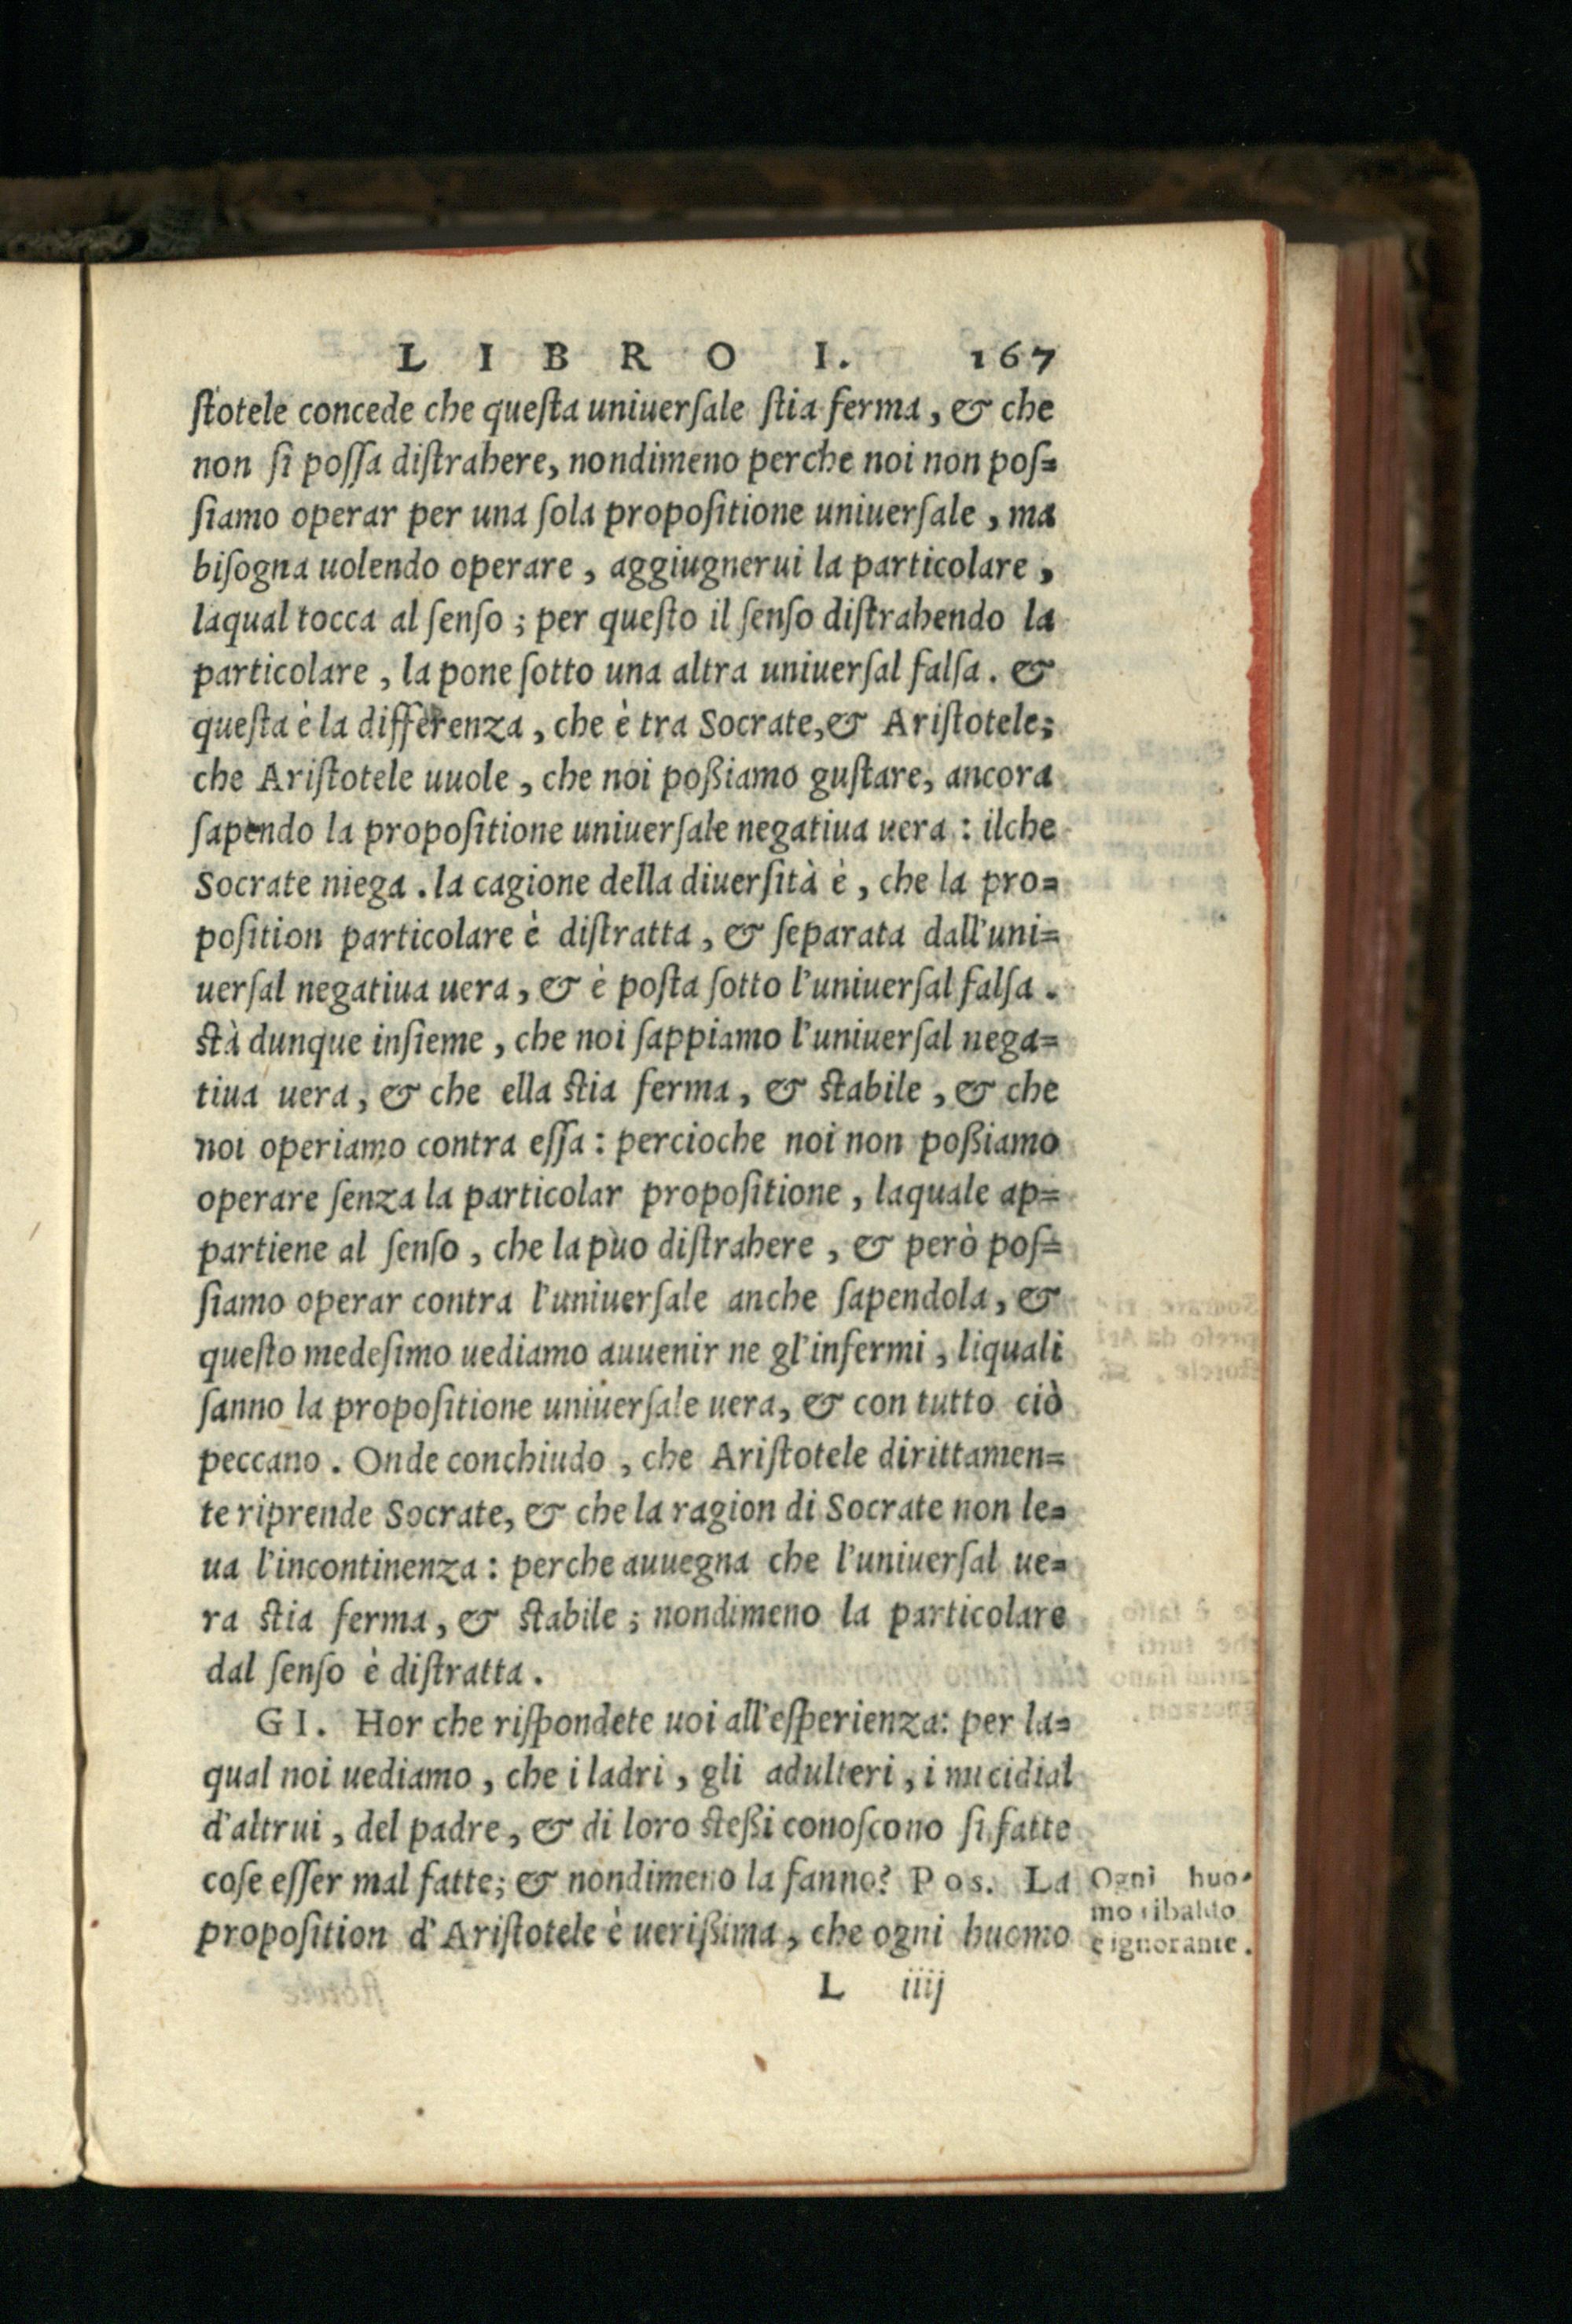 LIBRO I. 167
ſtotele concede che queſta uniuerſale ſtia ferma, & che
non ſi poſſa diſtrahere, nondimeno perche noi non poſ=
ſiamo operar per una ſola propoſitione uniuerſale, ma
biſogna uolendo operare, aggiugnerui la particolare,
laqual tocca al ſenſo; per queſto il ſenſo diſtrahendo la
particolare, la pone ſotto una altra uniuerſal falſa. &
queſta è la differenza, che è tra Socrate, & Ariſtotele;
che Ariſtotele uuole, che noi poßiamo guſtare, ancora
ſapendo la propoſitione uniuerſale negatiua uera: ilche
Socrate niega. la cagione della diuerſità è, che la pro=
poſition particolare è diſtratta, & ſeparata dall'uni=
uerſal negatiua uera, & è poſta ſotto l'uniuerſal falſa.
ſtà dunque inſieme, che noi ſappiamo l'uniuerſal nega=
tiua uera, & che ella ſtia ferma, & ſtabile, & che
noi operiamo contra eſſa: percioche noi non poßiamo
operare ſenza la particolar propoſitione, laquale ap=
partiene al ſenſo, che la pùo diſtrahere, & però poſ=
ſiamo operar contra l'uniuerſale anche ſapendola, &
queſto medeſimo uediamo auuenir ne gl'infermi, liquali
ſanno la propoſitione uniuerſale uera, & con tutto ciò
peccano. Onde conchiudo, che Ariſtotele dirittamen=
te riprende Socrate, & che la ragion di Socrate non le=
ua l'incontinenza: perche auuegna che l'uniuerſal ue=
ra ſtia ferma, & ſtabile; nondimeno la particolare
dal ſenſo è diſtratta.
GI. Hor che riſpondete uoi all'eſperienza: per la=
qual noi uediamo, che i ladri, gli adulteri, i micidial
d'altrui, del padre, & di loro ſteßi conoſcono ſi fatte
coſe eſſer mal fatte; & nondimeno la fanno? Pos. La
propoſition d'Ariſtotele è uerißima, che ogni huomo
Ogni huo-
mo ribaldo
è ignorante.
L iiij